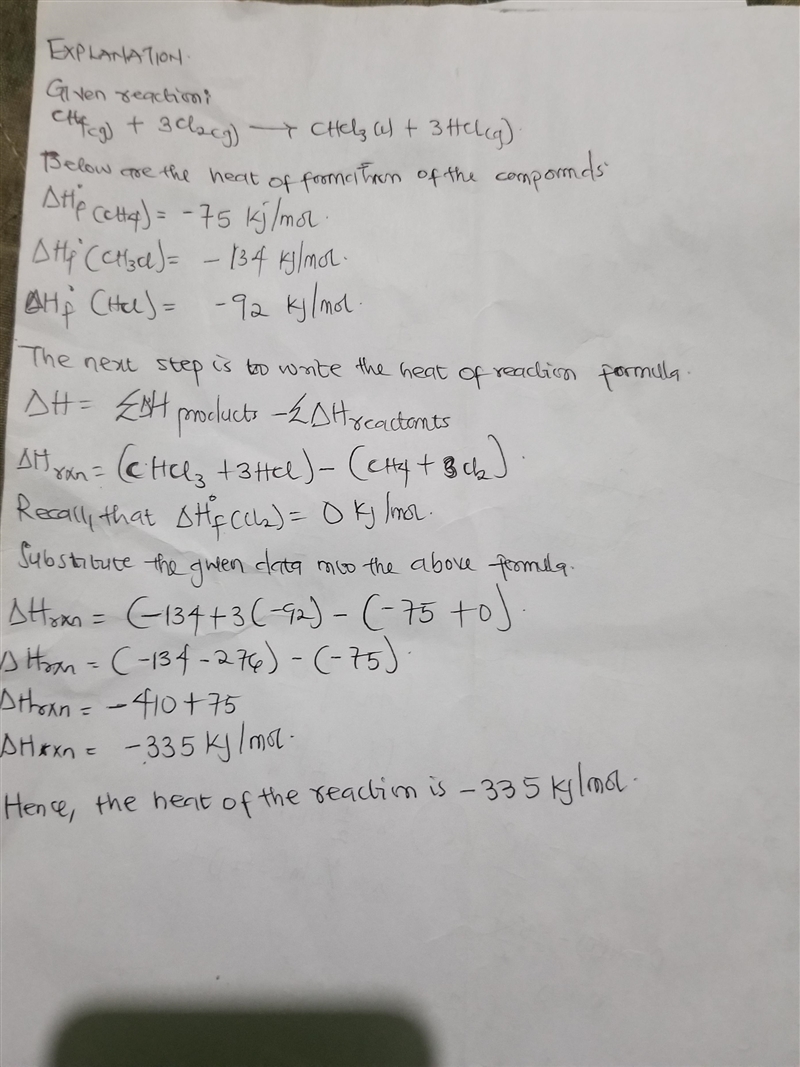 EXPLANATION.
Given reaction:
CH4(g) + 3Cl2(g) → CHCl3(l) + 3HCl(g).
Below are the heat of formation of the compounds:
ΔH°f (CH4) = -75 kJ/mol.
ΔH°f (CH3Cl) = -134 kJ/mol.
ΔH°f (HCl) = -92 kJ/mol.
The next step is to write the heat of reaction formula.
ΔH = ΣΔH products - ΣΔH reactants
ΔHrxn = (CHCl3 + 3HCl) - (CH4 + 3Cl2).
Recall, that ΔH°f (Cl2) = 0 kJ/mol.
Substitute the given data into the above formula.
ΔHrxn = (-134 + 3(-92) - (-75 + 0).
ΔHrxn = (-134 - 276) - (-75).
ΔHrxn = -410 + 75
ΔHrxn = -335 kJ/mol.
Hence, the heat of the reaction is -335 kJ/mol.